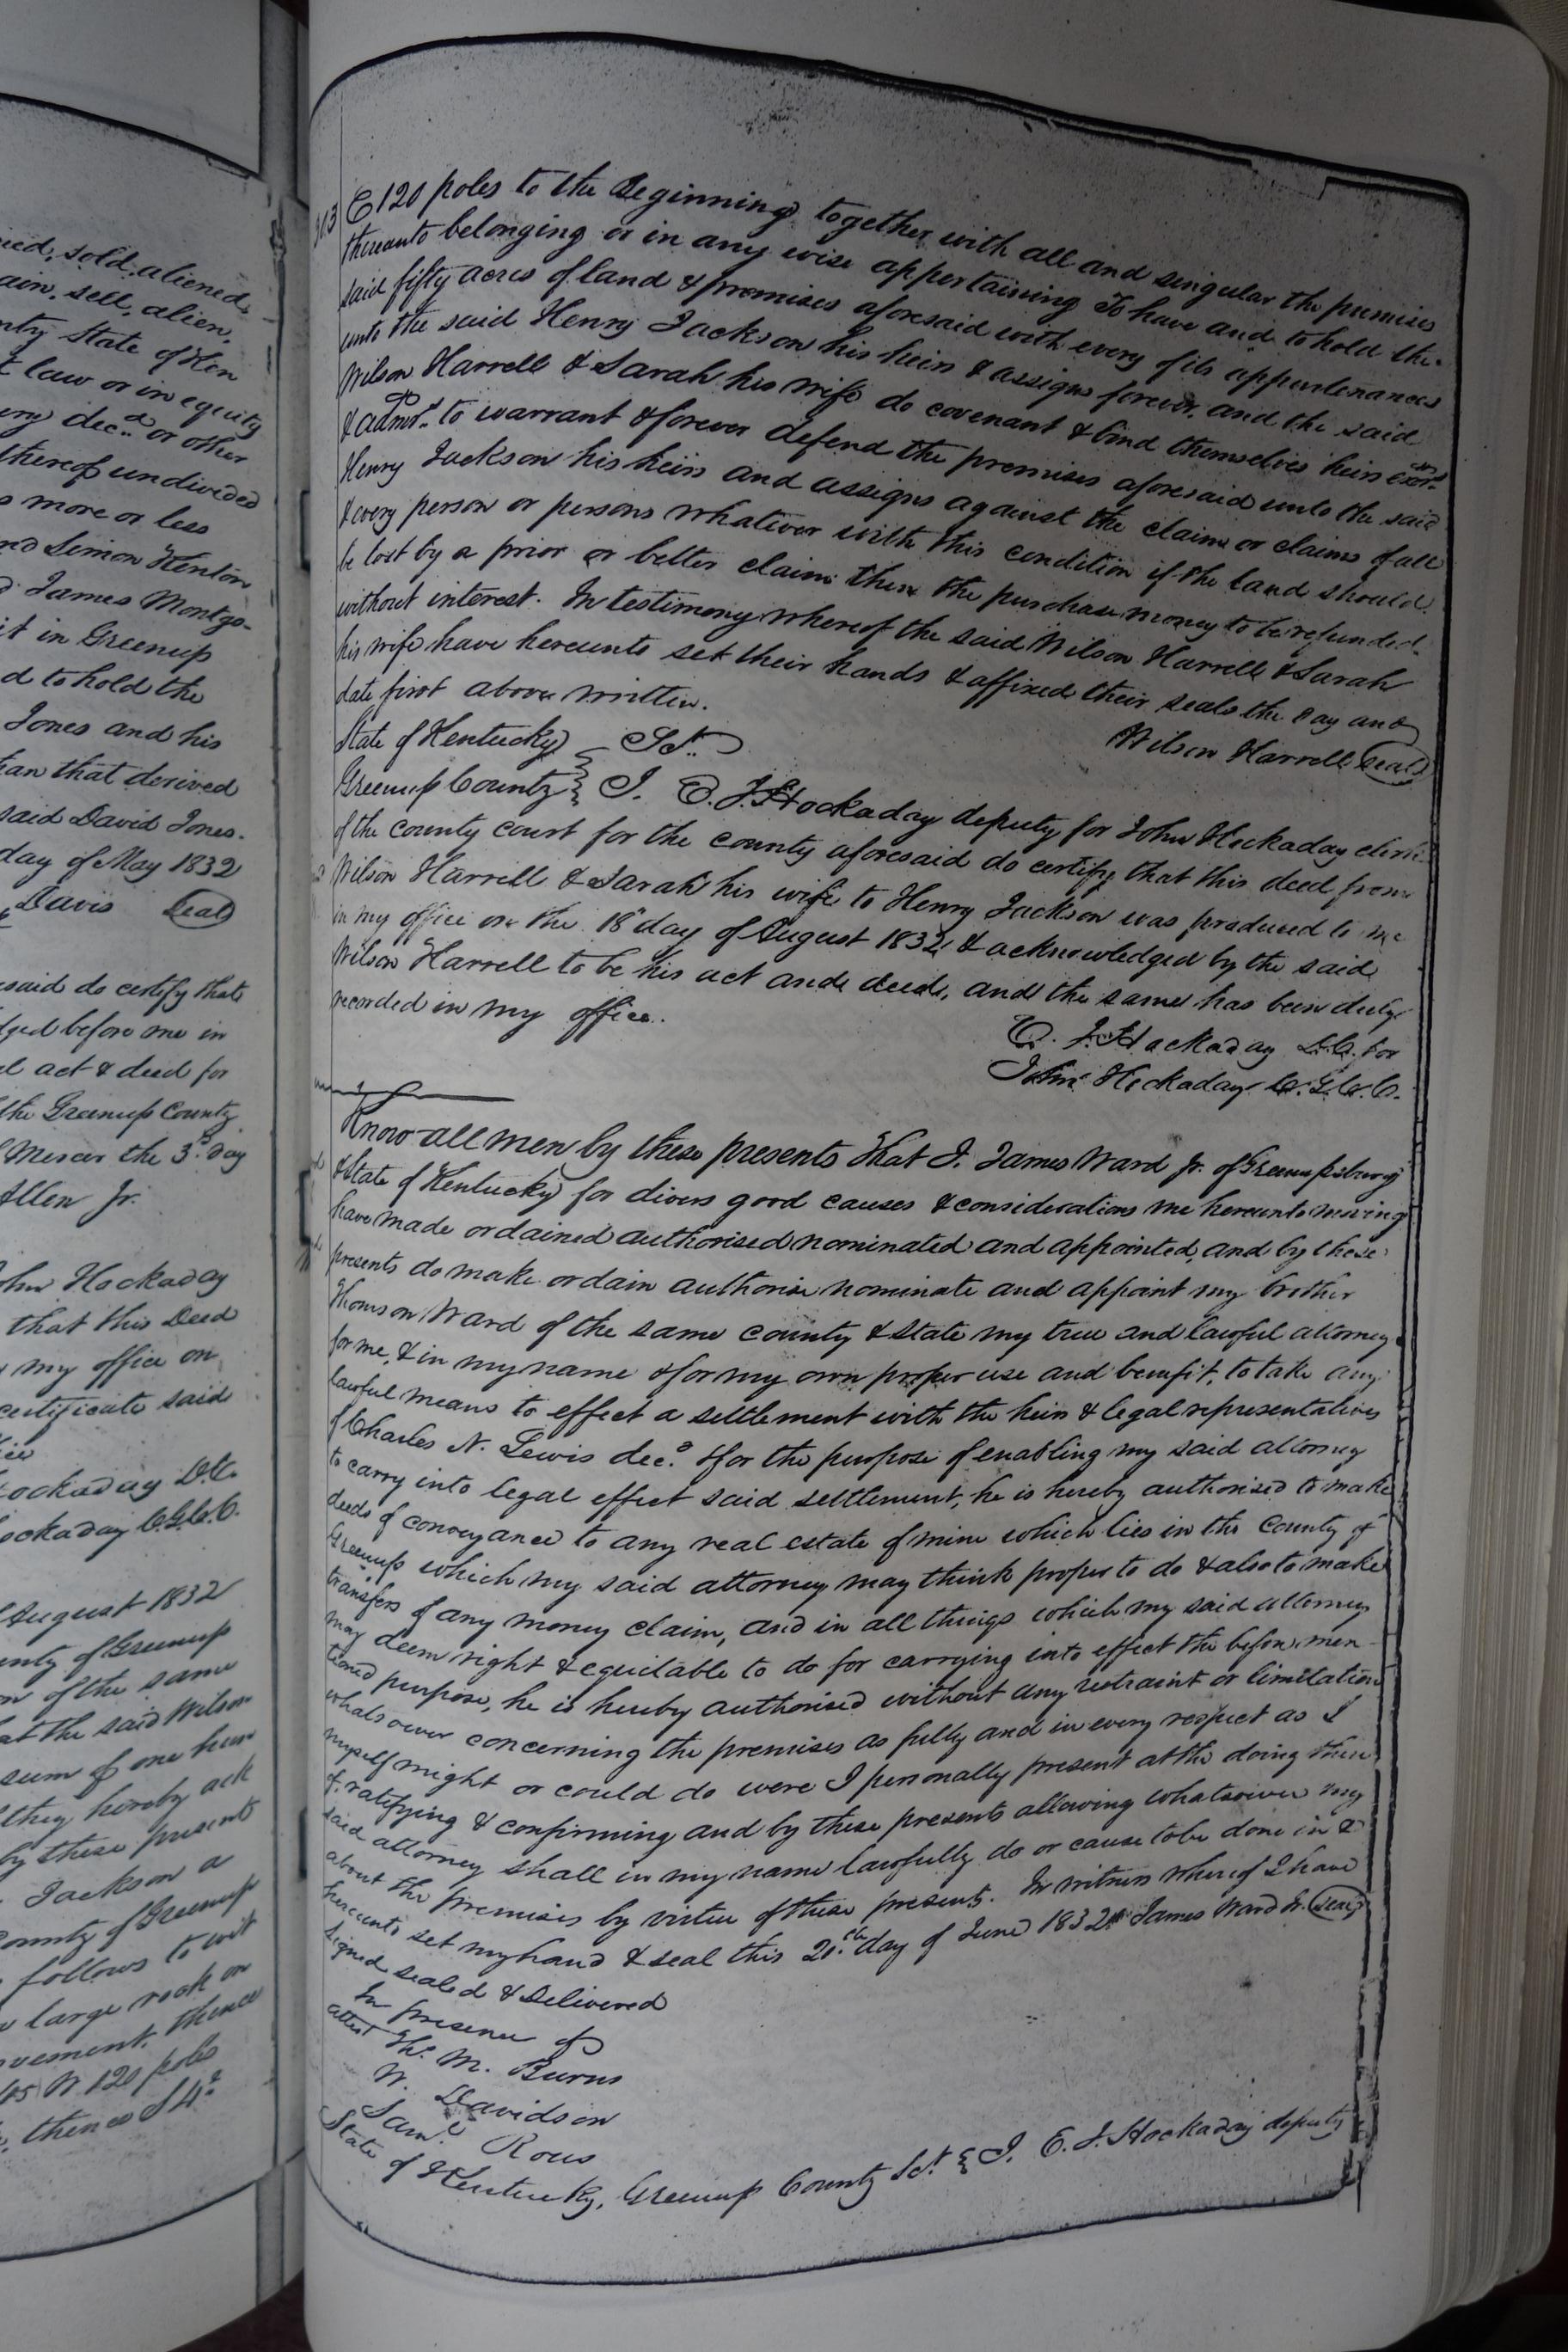 ied, sold, aliened,
ain, sell, alien,
nty State of Ken
t law or in equity
ery decd. or other
thereof undivided
s more or less
nd Simon Kenton
d James Montgo-
it in Greenup
d to hold the
Jones and his
han that derived
said David Jones.
day of May 1832
Davis Seal
said do certify that
dged before me in
l act & deed for
the Greenup County
Mercer the 3d. day
Allen Jr.
ohn Hockaday
that this Deed
my office on
certificate said
ice
Hockaday D.C.
ockaday C.G.C.C.
August 1832
unty of Greenup
n of the same
at the said Wilson
sum of one hun
they hereby ack
by these present
Jackson a
County of Greenup
follows to wit
a large rock on
vement. thence
45 W. 120 poles
thence S 4
E 120 poles to the Beginning together with all and singular the premises
thereunto belonging or in any wise appertaining To have and to hold the
said fifty acres of land & premises aforesaid with every of its appurtenances
unto the said Henry Jackson his heirs & assigns forever, and the said
Wilson Harrell & Sarah his wife do covenant & bind themselves heirs exors.
& admrs. to warrant & forever defend the premises aforesaid unto the said
Henry Jackson his heirs and assigns against the claim or claims of all
& every person or persons whatever with this condition if the land should
be lost by a prior or better claim then the purchase money to be refunded
without interest. In testimony whereof the said Wilson Harrell & Sarah
his wife have hereunto set their hands & affixed their seals the day and
date first above written.
Wilson Harrell Seal
State of Kentucky } Sct.
Greenup County } I. E. J. Hockaday deputy for John Hockaday clerk
of the county court for the county aforesaid do certify that this deed from
Wilson Harrell & Sarah his wife to Henry Jackson was produced to me
in my office on the 18th day of August 1832 & acknowledged by the said
Wilson Harrell to be his act and deed, and the same has been duly
recorded in my office.
E. J. Hockaday D.C. for
John Hockaday C.G.C.C.
Know all men by these presents that I. James Ward Jr. of Greenupsburg
& State of Kentucky for divers good causes & considerations me hereunto moving
have made ordained authorised nominated and appointed, and by these
presents do make ordain authorise nominate and appoint my brother
Thomson Ward of the same county & state my true and lawful attorney
for me, & in my name & for my own proper use and benefit, to take any
lawful means to effect a settlement with the heirs & legal representatives
of Charles N. Lewis decd. & for the purpose of enabling my said attorney
to carry into legal effect said settlement, he is hereby authorised to make
deeds of conveyance to any real estate of mine which lies in the County of
Greenup which my said attorney may think proper to do & also to make
transfers of any money claim, and in all things which my said attorney
may deem right & equitable to do for carrying into effect the before men-
tioned purpose, he is hereby authorised without any restraint or limitation
whatsoever concerning the premises as fully and in every respect as I
myself might or could do were I personally present at the doing there
of. ratifying & confirming and by these presents allowing whatsoever my
said attorney shall in my name lawfully do or cause to be done in &
about the premises by virtue of these presents. In witness whereof I have
hereunto set my hand & seal this 20th. day of June 1832 James Ward Jr. Seal
Signed sealed & delivered
In presence of
attest Ths. M. Burns
W. Davidson
Saml. Rous
State of Kentucky, Greenup County Sct. } I. E. J. Hockaday deputy